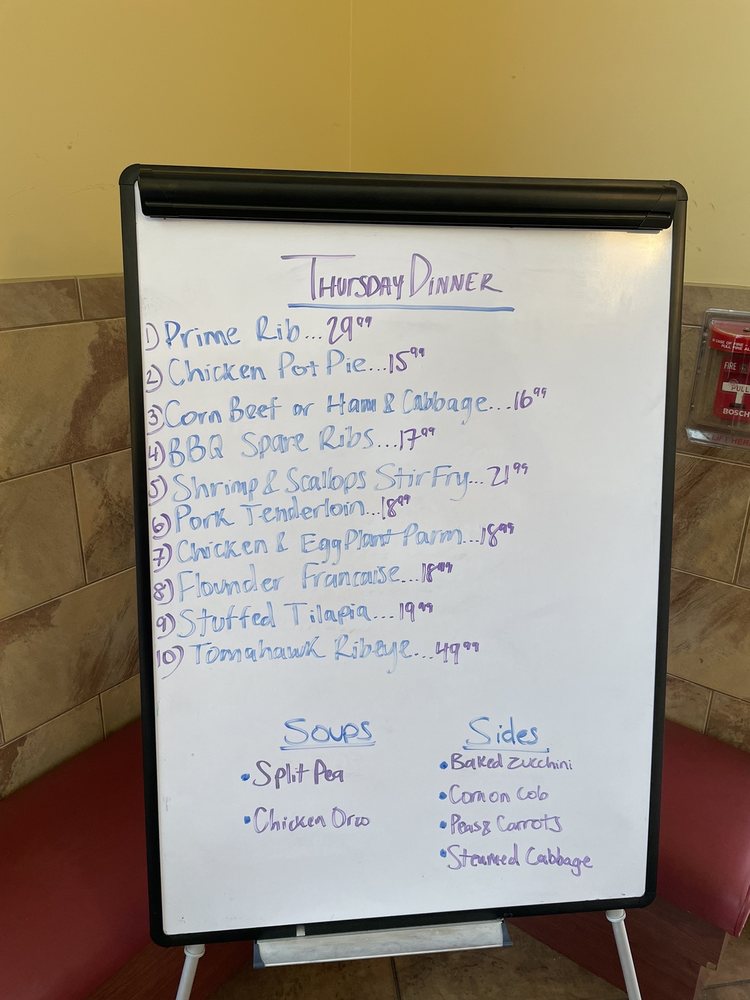 Thursday Dinner
1) Prime Rib...29⁹⁹
2) Chicken Pot Pie...15⁹⁹
3) Corn Beef or Ham & Cabbage...16⁹⁹
4) BBQ Spare Ribs...17⁹⁹
5) Shrimp & Scallops Stir Fry...21⁹⁹
6) Pork Tenderloin...18⁹⁹
7) Chicken & EggPlant Parm...18⁹⁹
8) Flounder Francaise...18⁹⁹
9) Stuffed Tilapia...19⁹⁹
10) Tomahawk Ribeye...49⁹⁹
Soups
• Split Pea
• Chicken Orzo
Sides
• Baked Zucchini
• Corn on Cob
• Peas & Carrots
• Steamed Cabbage
FIRE
PULL
BOSCH